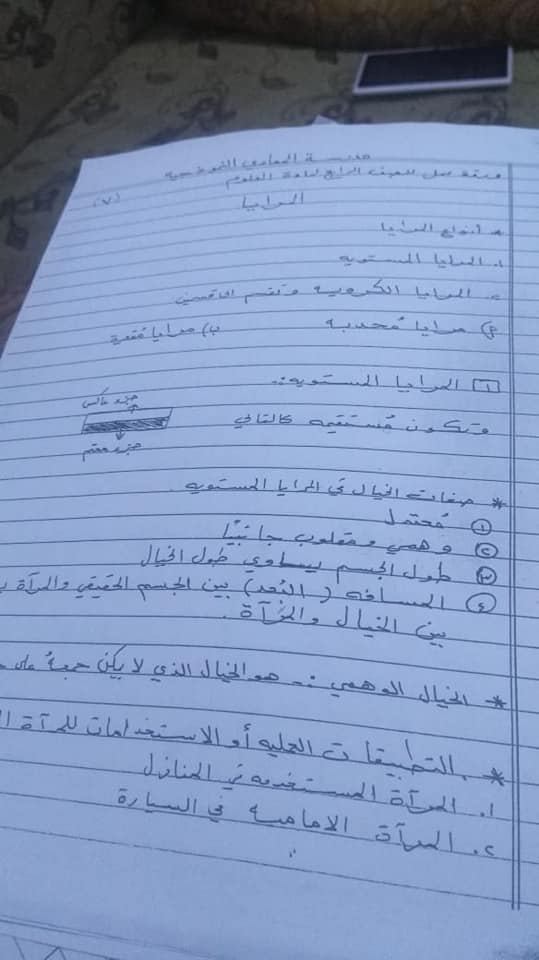 مدرسة المعادي النموذجية
ورقة عمل للصف الرابع لمادة العلوم
(٧)
المرايا
* أنواع المرايا
١. المرايا المستويه
٢. المرايا الكرويه وتقسم الى قسمين
أ) مرايا مُحدبه ب) مرايا مُقعرة
١ المرايا المستويه :-
وتكون مُستقيمه كالتالي
جزء عاكس
جزء معتم
* صفات الخيال في المرايا المستويه
١ مُعتدل
٢ وهمي ومقلوب جانبيًا
٣ طول الجسم يساوي طول الخيال
٤ المسافه (البُعد) بين الجسم الحقيقي والمرآة
بين الخيال والمرآة .
* الخيال الوهمي :- هو الخيال الذي لا يمكن جمعهُ على
* التطبيقات العمليه أو الاستخدامات للمرآة
١. المرآة المستخدمه في المنازل
٢. المرآة الاماميه في السيارة